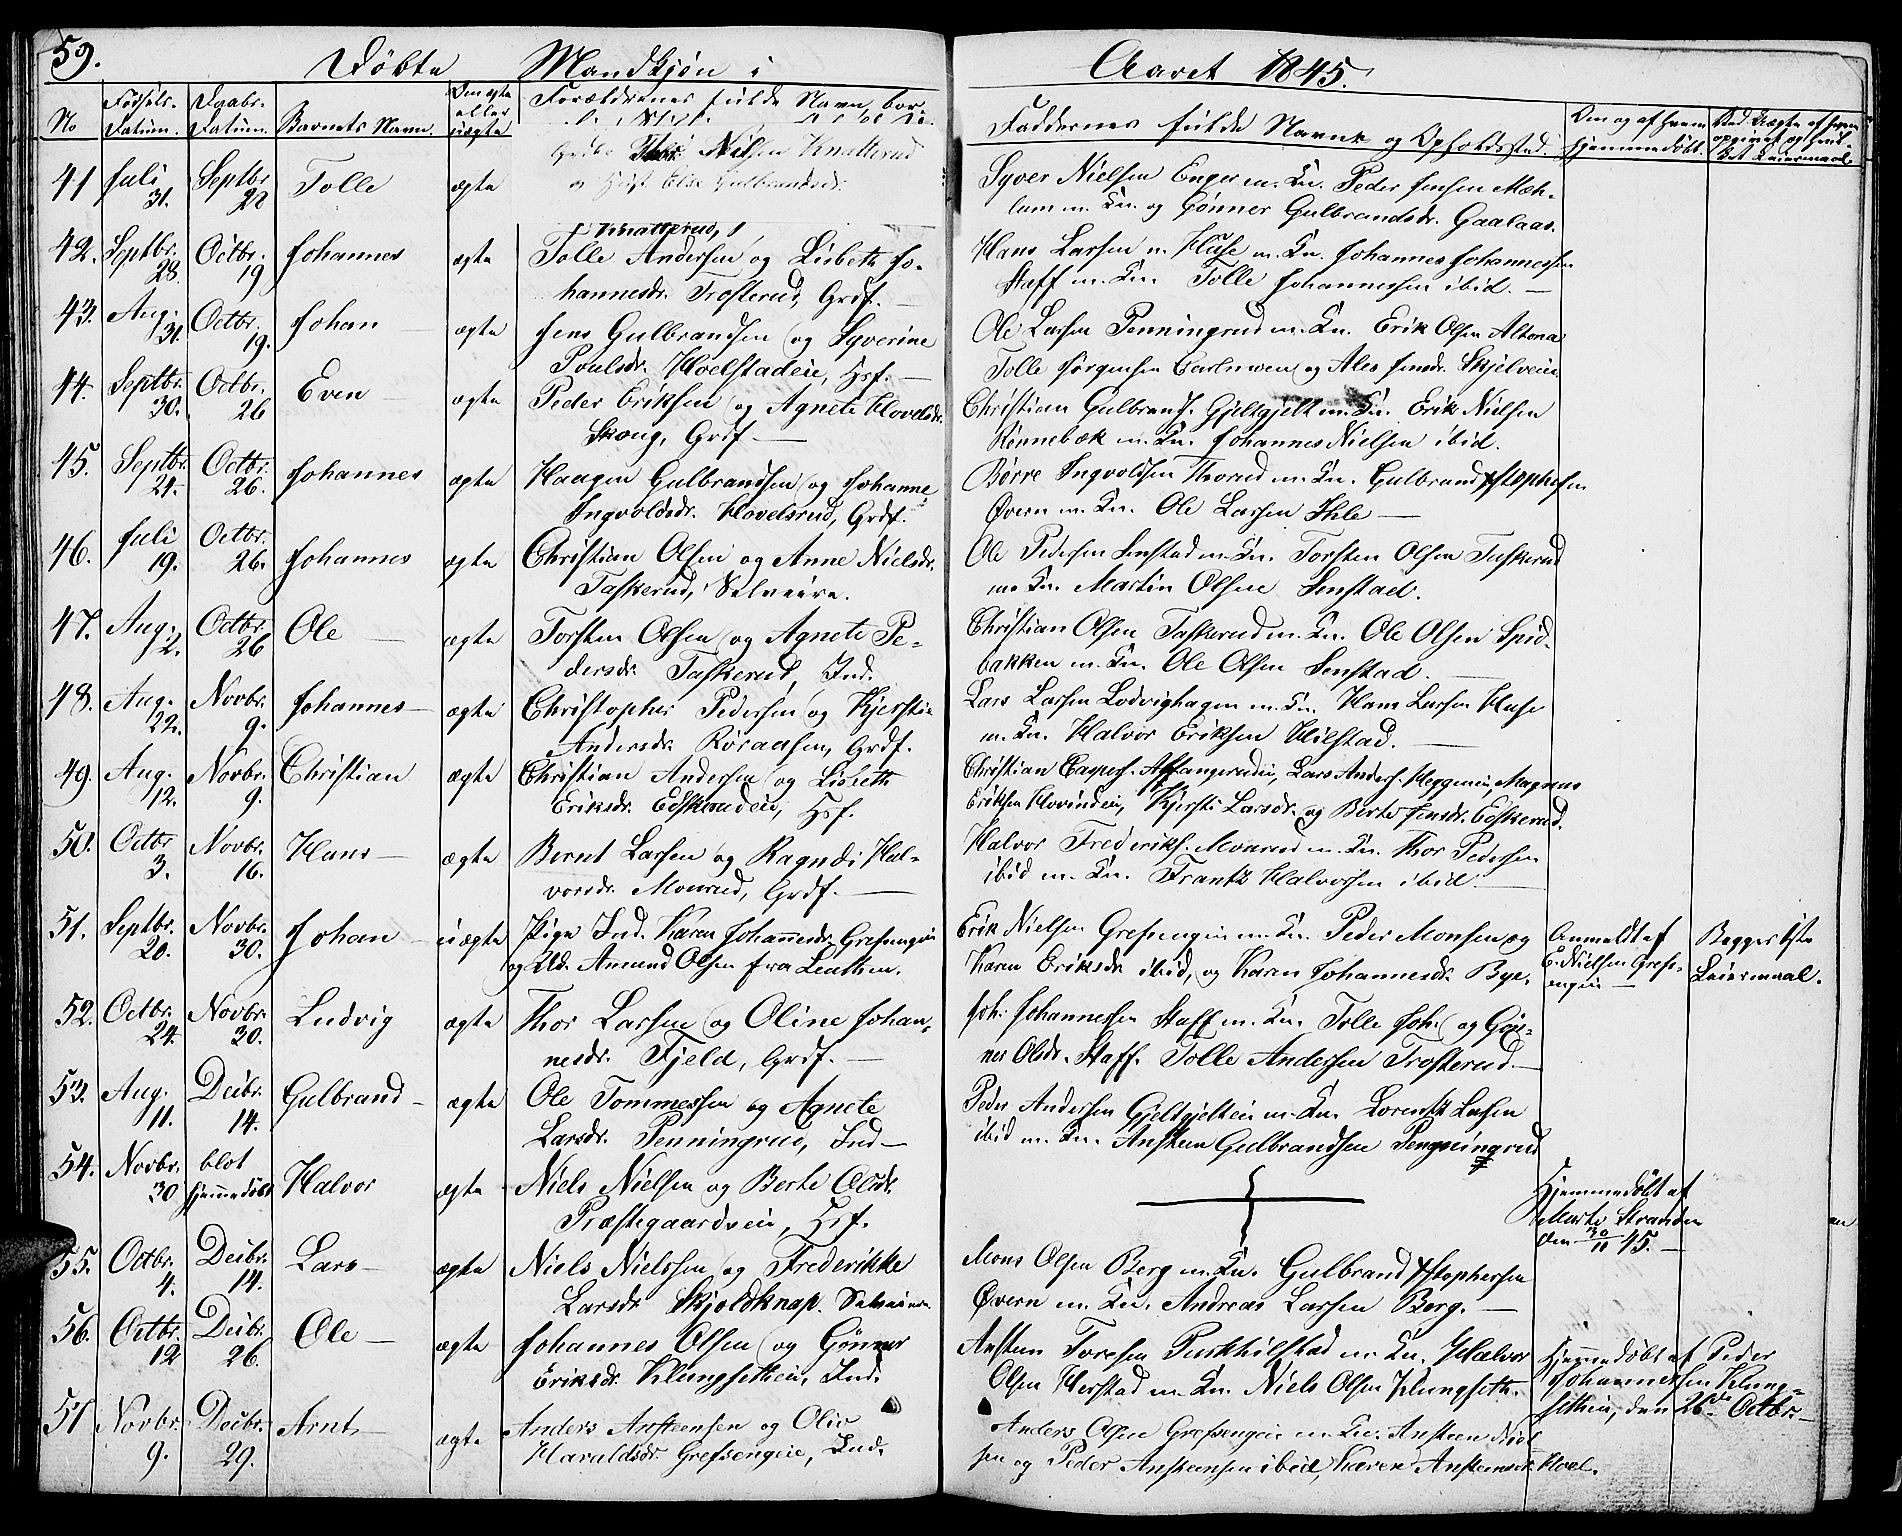 59.
Døbte Mandkjøn i Aaret 1845.
No
Fødsels-Datum.
Daabs-Datum.
Barnets Navn.
Om ægte eller uægte
Forældrenes fulde Navn, bor-
Faddernes fulde Navne og Opholdssted.
Om og af hvem hjemmedøbt.
41 Juli 31. Septbr. 28 Tolle ægte Grdbr. Nilsen Knatterud
og Hust. Else Gulbrandsdr.
Knatterud,
Syver Nielsen Enger m. Kn. Peder Jensen Mæh-
lum m. Kn. og Gönner Gulbrandsdr. Gaalaas.
42. Septbr. 28. Octbr. 19 Johannes ægte Tolle Andersen og Lisbeth Jo-
hannesdr. Trosterud, Grdf. —
Hans Larsen Huse m. Kn. Johannes Johannessen
Staff m. Kn. Tolle Johannessen ibid. —
43. Aug. 31. Octbr. 19. Johan ægte Jens Gulbrandsen og Syverine
Poulsdr. Hoelstadeie, Hsf. —
Ole Larsen Penningrud m. Kn. Erik Olsen Altona
Tolle Jørgensen og Ales Jensdr. Skjelveien.
44. Septbr. 30. Octbr. 26 Even — ægte Peder Eriksen og Agnete Hovelsdr.
Skoug, Grdf —
Christian Gulbrands. Gjeltgjelt m. Kn. Erik Nielsen
Rønnebæk m. Kn. Johannes Nielsen ibid.
45. Septbr. 21. Octbr. 26. Johannes ægte Haagen Gulbrandsen og Johanne
Ingvoldsdr. Hovelsrud, Grdf.
Børre Ingvoldsen Thorud m. Kn. Gulbrand Xstophersen
Øvern m. Kn. Ole Larsen Ihle —
46. Juli 19. Octbr. 26. Johannes ægte Christian Olsen og Anne Nielsdr.
Taskerud, Selveiere.
Ole Pedersen Senstad m. Kn. Torsten Olsen Taskerud
m. Kn. Martin Olsen Senstad.
47. Aug. 2. Octbr. 26 Ole — ægte Torsten Olsen og Agnete Pe-
dersdr. Taskerud, Ind.
Christian Olsen Taskerud m. Kn. Ole Olsen Spid-
bakken m. Kn. Ole Olsen Senstad. —
48. Aug. 22. Novbr. 9. Johannes — ægte Christopher Pedersen og Kjersti
Andersdr. Røraasen, Grdf.
Lars Larsen Lodvighagen m. Kn. Hans Larsen Huse
m. Kn. Halvor Eriksen Hilstad. —
49. Aug. 12. Novbr. 9. Christian ægte Christian Andersen og Lisbeth
Eriksdr. Eeskerudeie, Hsf.
Christian Caspers. Affangerudeie, Lars Anders. Heggeneie, Magnus
Eriksen Hovindeie, Kjersti Larsdr. og Berte Jensdr. Eeskerud.
50. Octbr. 3. Novbr. 16. Hans — ægte Bernt Larsen og Ragndi Hal-
vorsdr. Monrud, Grdf. —
Halvor Frederiks. Monrud m. Kn. Thor Pedersen
ibid m. Kn. Frantz Halvorsen ibid. —
51. Septbr. 20. Novbr. 30. Johan — uægte Pige Ind. Karen Johannesdr. Grefsengeie
og Uld. Amund Olsen fra Leuthen.
Erik Nielsen Grefsengeie m. Kn. Peder Monsen og
Karen Eriksdr. ibid, og Karen Johannesdr. Bye.
Anmeldt af
E. Nielsen Grefs-
engeie —
Begges 1ste
Leiermaal.
52. Octbr. 24. Novbr. 30. Ludvig ægte Thor Larsen og Oline Johan-
nesdr. Fjeld, Grdf. —
Joh. Johannessen Staff m. Kn. Tolle Joh. og Gön-
ner Olsdr. Staff. Tolle Andersen Trosterud. —
53. Aug. 11. Decbr. 14. Gulbrand — ægte Ole Tommessen og Agnete
Larsdr. Penningrud, Ind —
Peder Andersen Gjeltgjelteie m. Kn. Lorentz Larsen
ibid m. Kn. Ansteen Gulbrandsen Pengningrud
54. Novbr. 30 blot hjemmedøbt Halvor ægte Niels Nielsen og Berte Olsdr.
Præstegaardseie, Hsf.
Hjemmedøbt af
Marte Stranden
den 30/11 45. —
55. Octbr. 4. Decbr. 14. Lars — ægte Niels Nielssen og Frederikke
Larsdr. Skjoldknap. Selveiere
Mons Olsen Berg m. Kn. Gulbrand Xstophersen
Øvern m. Kn. Andreas Larsen Berg. —
56. Octbr. 12 Decbr. 26. Ole — ægte Johannes Olsen og Gönner
Eriksdr. Klungsetheie, Ind.
Ansteen Toresen Puskhilstad m. Kn. Halvor
Olsen Herstad m. Kn. Niels Olsen Klungseth.
Hjemmedøbt af Peder
Johannessen Klung-
setheie, den 26de Octbr. —
57 Novbr. 9. Decbr. 29. Arnt — ægte Anders Ansteensen og Oliv
Haraldsdr. Grefsengeie, Ind.
Anders Olsen Grefsengeie m. Kn. Ansteen Niel-
sen og Peder Ansteensen ibid, Karen Ansteensdr. Hoel.